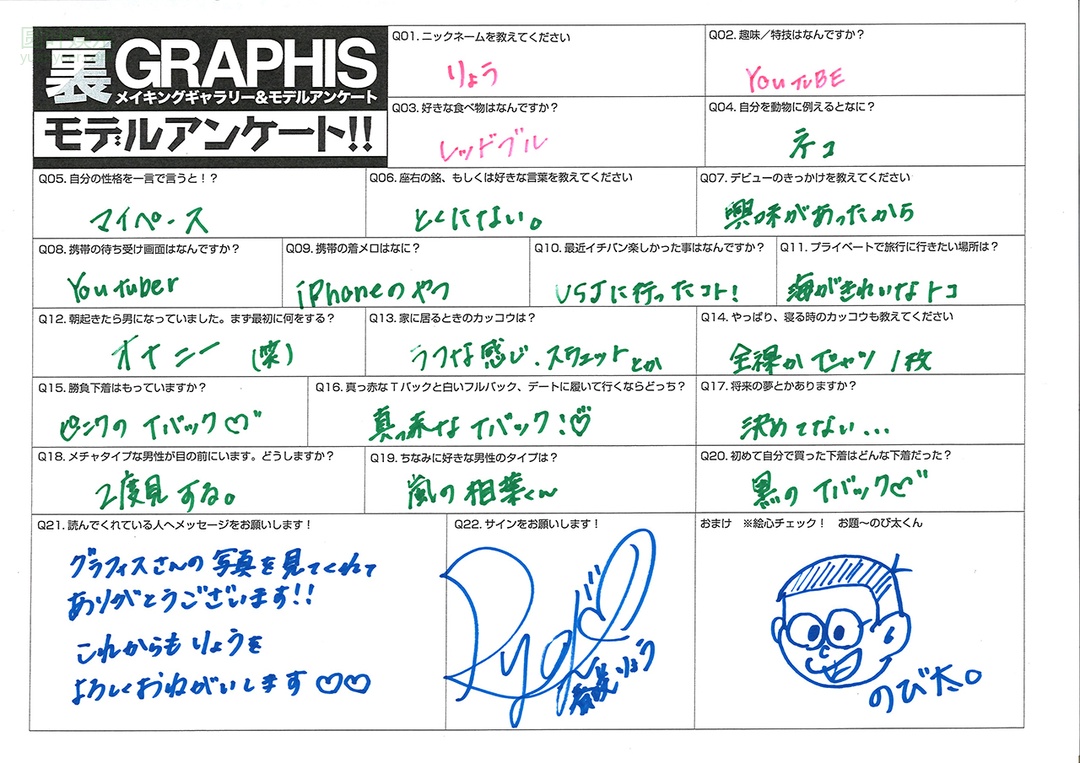 裏GRAPHIS
メイキングギャラリー&モデルアンケート
モデルアンケート!!
Q01. ニックネームを教えてください
りょう
Q02. 趣味／特技はなんですか？
YouTuBE
Q03. 好きな食べ物はなんですか？
レッドブル
Q04. 自分を動物に例えるとなに？
ネコ
Q05. 自分の性格を一言で言うと！？
マイペース
Q06. 座右の銘、もしくは好きな言葉を教えてください
とくにない。
Q07. デビューのきっかけを教えてください
興味があったから
Q08. 携帯の待ち受け画面はなんですか？
Youtuber
Q09. 携帯の着メロはなに？
iPhoneのやつ
Q10. 最近イチバン楽しかった事はなんですか？
USJに行ったコト!
Q11. プライベートで旅行に行きたい場所は？
海がきれいなトコ
Q12. 朝起きたら男になっていました。まず最初に何をする？
オナニー (笑)
Q13. 家に居るときのカッコウは？
ラフな感じ．スウェットとか
Q14. やっぱり、寝る時のカッコウも教えてください
全裸かTシャツ1枚
Q15. 勝負下着はもっていますか？
ピンクのTバック♡
Q16. 真っ赤なTバックと白いフルバック、デートに履いて行くならどっち？
真っ赤なTバック!♡
Q17. 将来の夢とかありますか？
決めてない...
Q18. メチャタイプな男性が目の前にいます。どうしますか？
2度見する。
Q19. ちなみに好きな男性のタイプは？
嵐の相葉くん
Q20. 初めて自分で買った下着はどんな下着だった？
黒のTバック♡
Q21. 読んでくれている人へメッセージをお願いします！
グラフィスさんの写真を見てくれて
ありがとうございます!!
これからもりょうを
よろしくおねがいします♡♡
Q22. サインをお願いします！
Ryo
りょう
おまけ　※絵心チェック！　お題〜のび太くん
のび太。